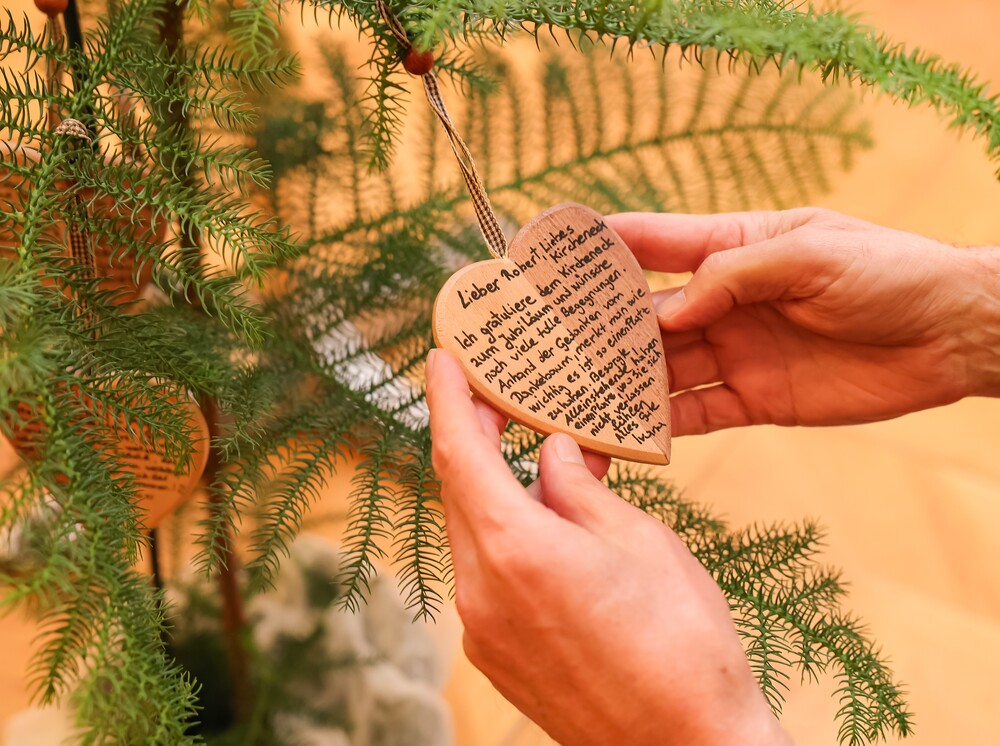 Lieber Robert, Liebes
Kircheneck
Ich gratuliere dem Kircheneck
zum Jubiläum und wünsche
noch viele tolle Begegnungen.
Anhand der Gedanken vom
Dankebaum, merkt man wie
wichtig es ist so einen Platz
zu haben. Besorgte
Alleinstehende haben
einen Platz wo Sie sich
nicht verlassen
fühlen
Alles Gute